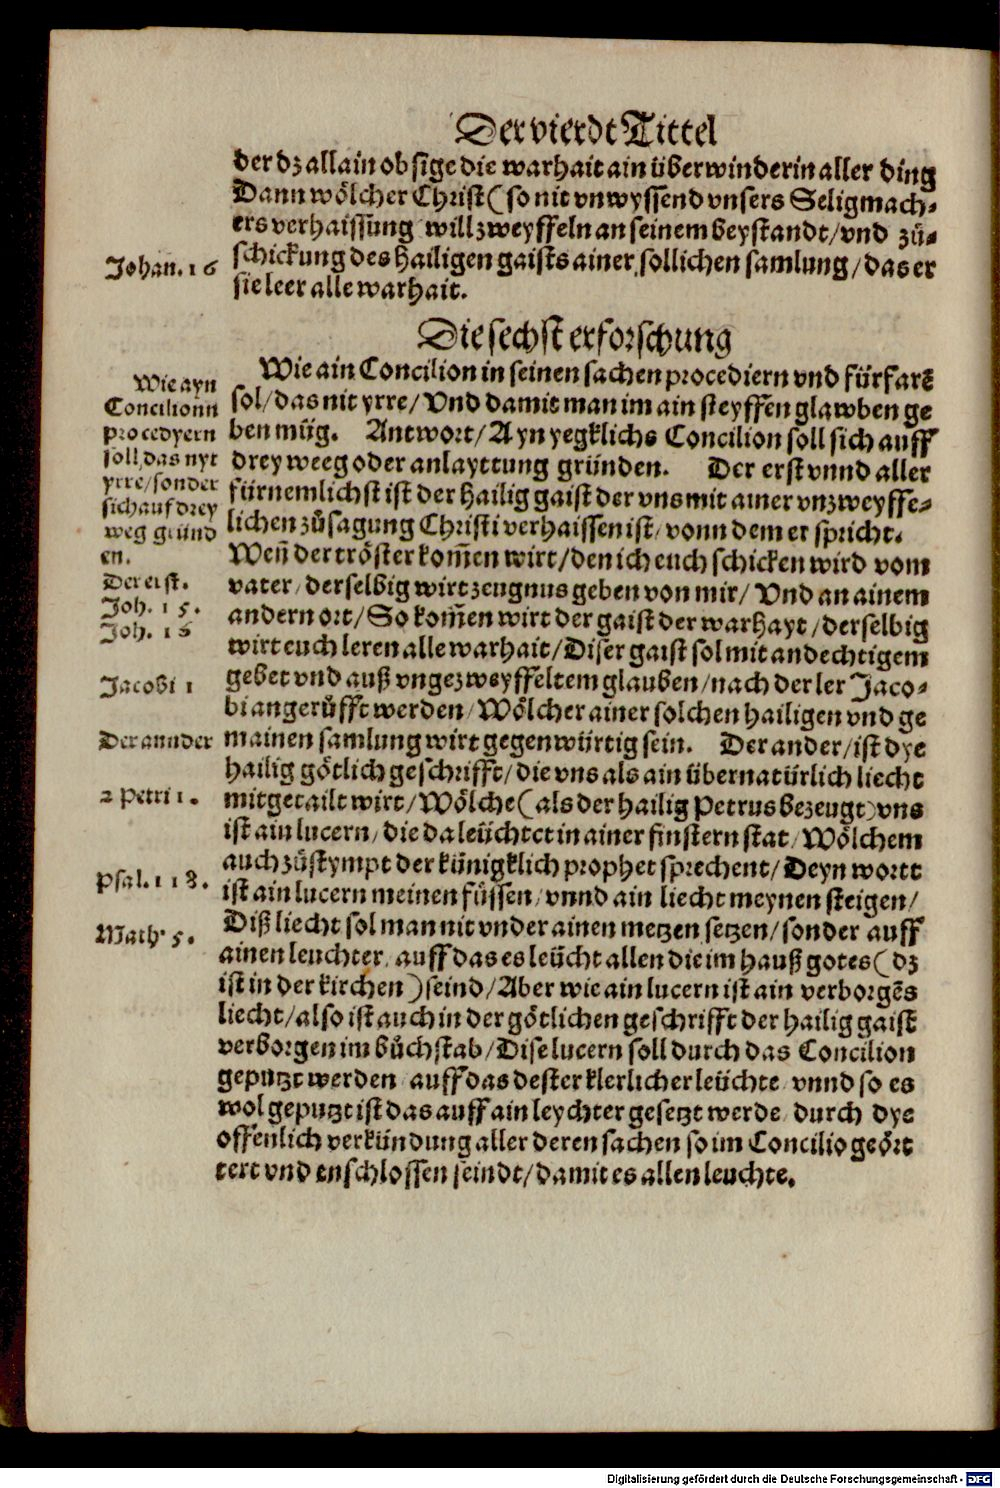 Der vierdt Tittel
der dz allain ob sige die warhait ain überwinderin aller ding
Dann wölcher Christ (so nit vnwyssend vnsers Seligmach-
ers verhaissung will zweyffeln an seinem beystandt / vnd zů-
Johan. 16
schickung des hailigen gaists ainer sollichen samlung / das er
sie leer alle warhait.
Die sechst erforschung
Wie ayn
Concilionn
procedyern
soll das nyt
yrre / sonder
sich auf drey
weg gründ
en.
Der erst.
Joh. 15.
Joh. 16
Jacobi 1
Der annder
2 Petri 1.
Psal. 118.
Math. 5.
Wie ain Concilion in seinen sachen procediern vnd fürfarē
sol / das nit yrre / Vnd damit man im ain steyffen glawben ge
ben müg. Antwort / Ayn yegklichs Concilion soll sich auff
drey weeg oder anlayttung gründen. Der erst vnnd aller
fürnemlichst ist der hailig gaist der vns mit ainer vnzweyffe-
lichen zůsagung Christi verhaissen ist / vonn dem er spricht.
Weñ der tröster kom̄en wirt / den ich euch schicken wird vom
vater / derselbig wirt zeugnus geben von mir / Vnd an ainem
andern ort / So kom̄en wirt der gaist der warhayt / derselbig
wirt euch leren alle warhait / Diser gaist sol mit andechtigem
gebet vnd auß vngezweyffeltem glauben / nach der ler Jaco-
bi angerůfft werden / Wölcher ainer solchen hailigen vnd ge
mainen samlung wirt gegenwürtig sein. Der ander / ist dye
hailig götlich geschrifft / die vns als ain übernatürlich liecht
mitgetailt wirt / Wölche (als der hailig Petrus bezeugt) vns
ist ain lucern / die da leüchtet in ainer finstern stat / Wölchem
auch zůstympt der künigklich prophet sprechent / Deyn wortt
ist ain lucern meinen füssen / vnnd ain liecht meynen steigen /
Diß liecht sol man nit vnder ainen metzen setzen / sonder auff
ainen leuchter / auff das es leücht allen die im hauß gotes (dz
ist in der kirchen) seind / Aber wie ain lucern ist ain verborgēs
liecht / also ist auch in der götlichen geschrifft der hailig gaist
verborgen im bůchstab / Dise lucern soll durch das Concilion
geputzt werden / auff das dester klerlicher leüchte / vnnd so es
wol geputzt ist das auff ain leychter gesetzt werde / durch dye
offenlich verkündung aller deren sachen so im Concilio geört
tert vnd enschlossen seindt / damit es allen leuchte.
Digitalisierung gefördert durch die Deutsche Forschungsgemeinschaft - DFG